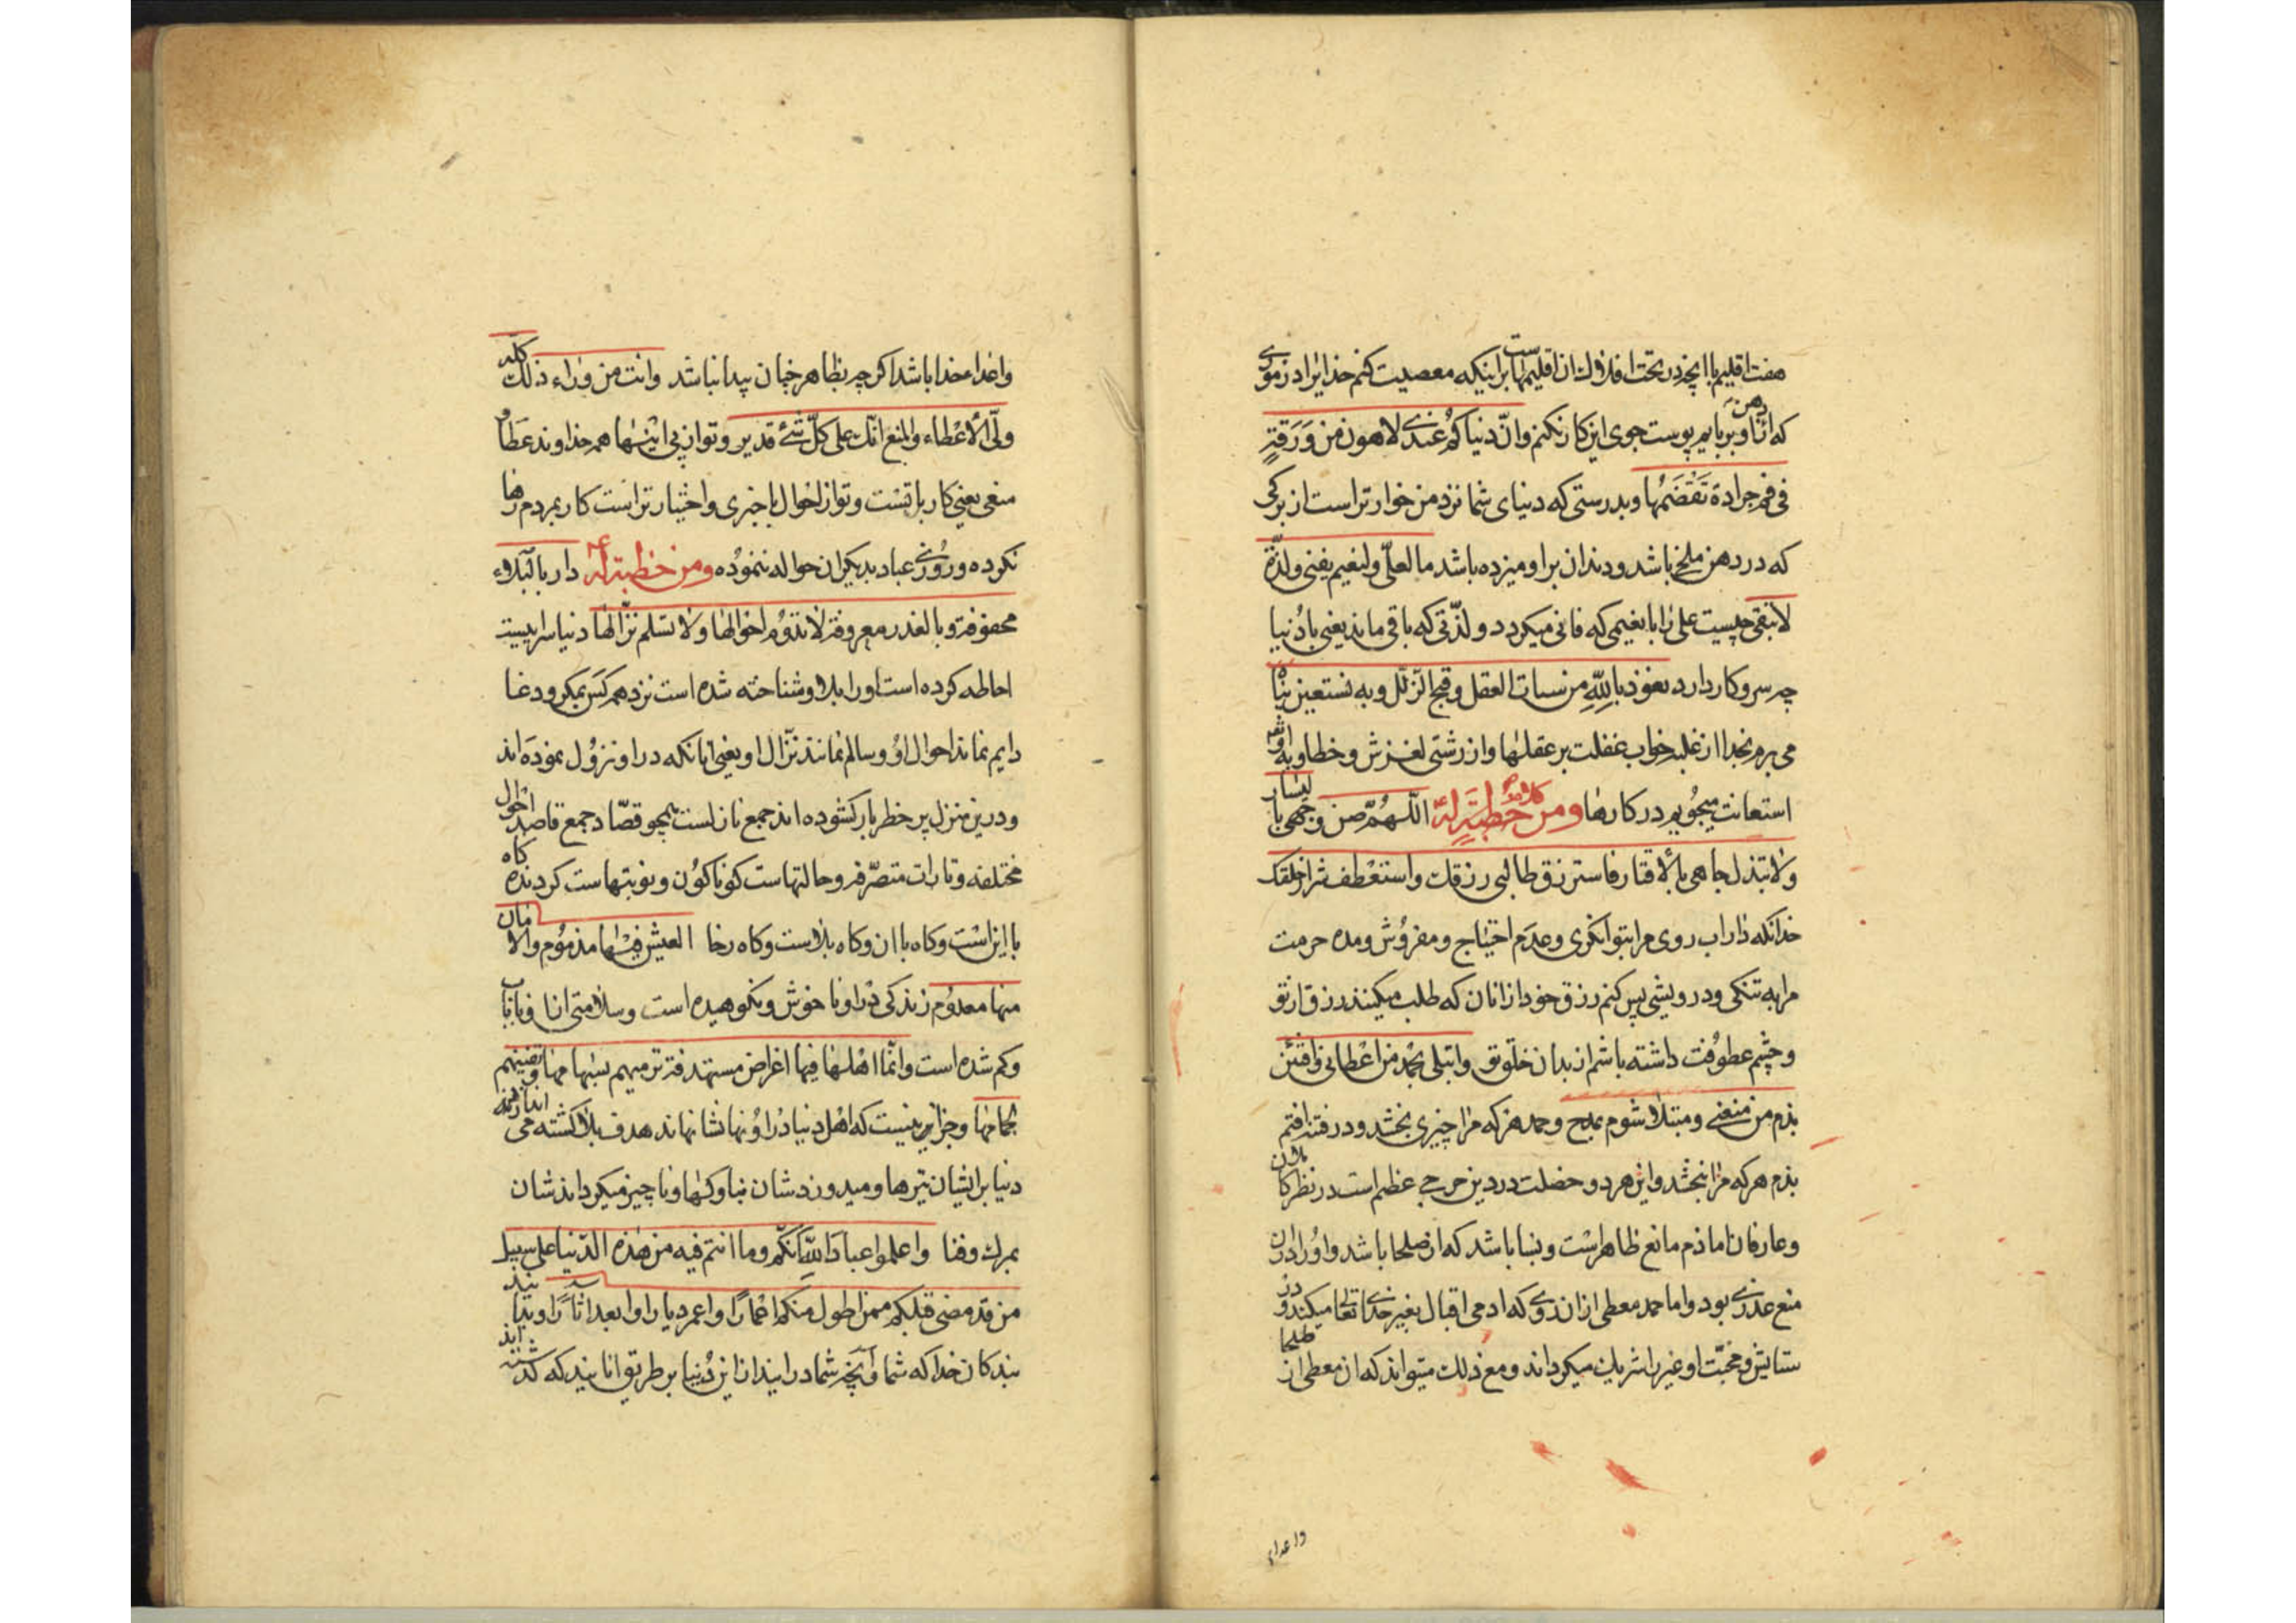 هفت اقلیم با انچه در تحت افلاک ان اقلیمهاست بر اینکه معصیت کنم خدایرا در موری
که از دهن او بربایم پوست جوی این کار نکنم وانّ دنیاکم عندی لاهون من وَرَقةٍ
فی فم جرادة تَقْضَمُها و بدرستی که دنیای شما نزد من خوارتر است از برکی
که در دهن ملخ باشد و دندان بر او میزده باشد ما لعلیّ ولنعیم یفنی ولذّة
لا تبقی چیست علی را با نعیمی که فانی میکردد و لذّتی که باقی نماند یعنی با دُنیا
چه سر و کار دارد نعوذ باللّهِ من سبات العقل وقبح الزّلل وبه نستعین پناه
می برم بخدا از غلبه خواب غفلت بر عقلها و از زشتی لغزش و خطا و به او
استعانت میجُویم در کارها ومن کلام خطبَةٍ لهٌ اللّهُمّ صن وجهی بالیسار
ولا تبذل جاهی بالاقتار فاسترزق طالبی رزقک واستعطف شرار خلقک
خدا نکه دار اب روی مرا بتوانکری و عدم احتیاج و مفرُوش و مده حرمت
مرا به تنکی و درویشی پس کنم رزق خود از انان که طلب میکنند رزق از تو
و چشم عطوُفت داشته باشم از بدان خلق تو وابتلی بحمد من اعطانی وافتتن
بذم من منعنی و مبتلا شوم بمدح و حمد هر که مرا چیزی بخشد و در فتنه افتم
بذم هر که مرا نبخشد و این هر دو خصلت در دین حرجی عظیم است در نظر کاملان
و عارفان اما ذم مانع ظاهر است و بسا باشد که از صلحا باشد و او را در ان
منع عذری بود و اما حمد معطی از ان روی که ادمی اقبال بغیر خدای تعالی میکند و در
ستایش و محبّت او غیر را شریک میکرداند و مع ذلک میتواند که ان معطی از ظلما
و اعدای
و اعداء خدا باشد اکرچه بظاهر خیان پیدا نباشد وانت من وراء ذلک کله
ولّی الاعْطاء والمنع انّک علی کلّ شئ قدیر و تو از پی اینها همه خداوند عطا و
منعی یعنی کار با تست و تو از احوال باخبری و اختیار تراست کار بمردم رها
نکرده و روُزی عباد بدیکران حواله ننموُده ومن خطبة له دار بالبلاء
محفوفة وبالغدر معروفة لا تدوُم احوالها ولا تسلم نزّالها دنیا سراییست
احاطه کرده است او را بلا و شناخته شده است نزد همه کس بمکر و دغا
دایم نماند احوال او و سالم نمانند نزّال او یعنی انانکه در او نزوُل نموده اند
و درین منزل پر خطر بار کشوده اند جمع نازل است همچو قصّاد جمع قاصد احوال
مختلفه وتارات متصرّفه و حالتهاست کوناکوُن و نوبتهاست کردنده کاه
با این است و کاه با ان و کاه بلاست و کاه رخا العیش فیها مذموُم والامان
منها معدوُم زندکی در او ناخوش و نکوهیده است و سلامتی از ان نایاب
و کم شده است وانّما اهلها فیها اغراض مستهدفة ترمیهم بسهامها وتفنیهم
بحمامها و جز این نیست که اهل دنیا در او نهانشانهاند هدف بلا کشته می اندازد همه
دنیا بر ایشان تیرها و میدوزدشان بناوکها و ناچیز میکرداندشان
بمرک و فنا واعلموا عباد اللهِ انّکم وما انتم فیه من هذه الدّنیا علی سبیل
من قد مضی قبلکم ممن اطول منکم اعمارًا واعمر دیارا وابعد اثارًا و بدانید
بندکان خدا که شما و انچه شما در انید از این دُنیا بر طریق انانید که کذشته اند